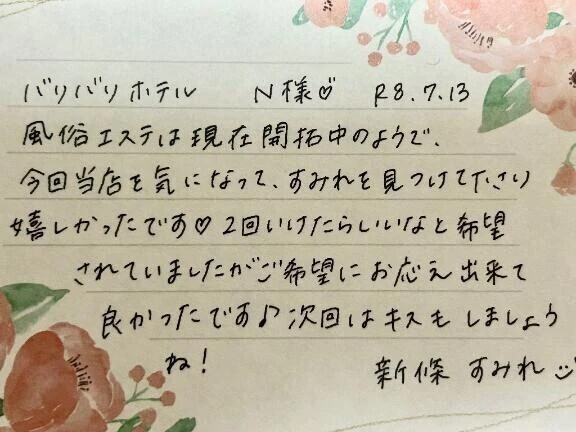 バリバリホテル N様♡ R8.7.13
風俗エステは現在開拓中のようで、
今回当店を気になって、すみれを見つけて下さり
嬉しかったです♡2回いけたらいいなと希望
されていましたがご希望にお応え出来て
良かったです♪次回はキスもしましょう
ね!
新條 すみれ